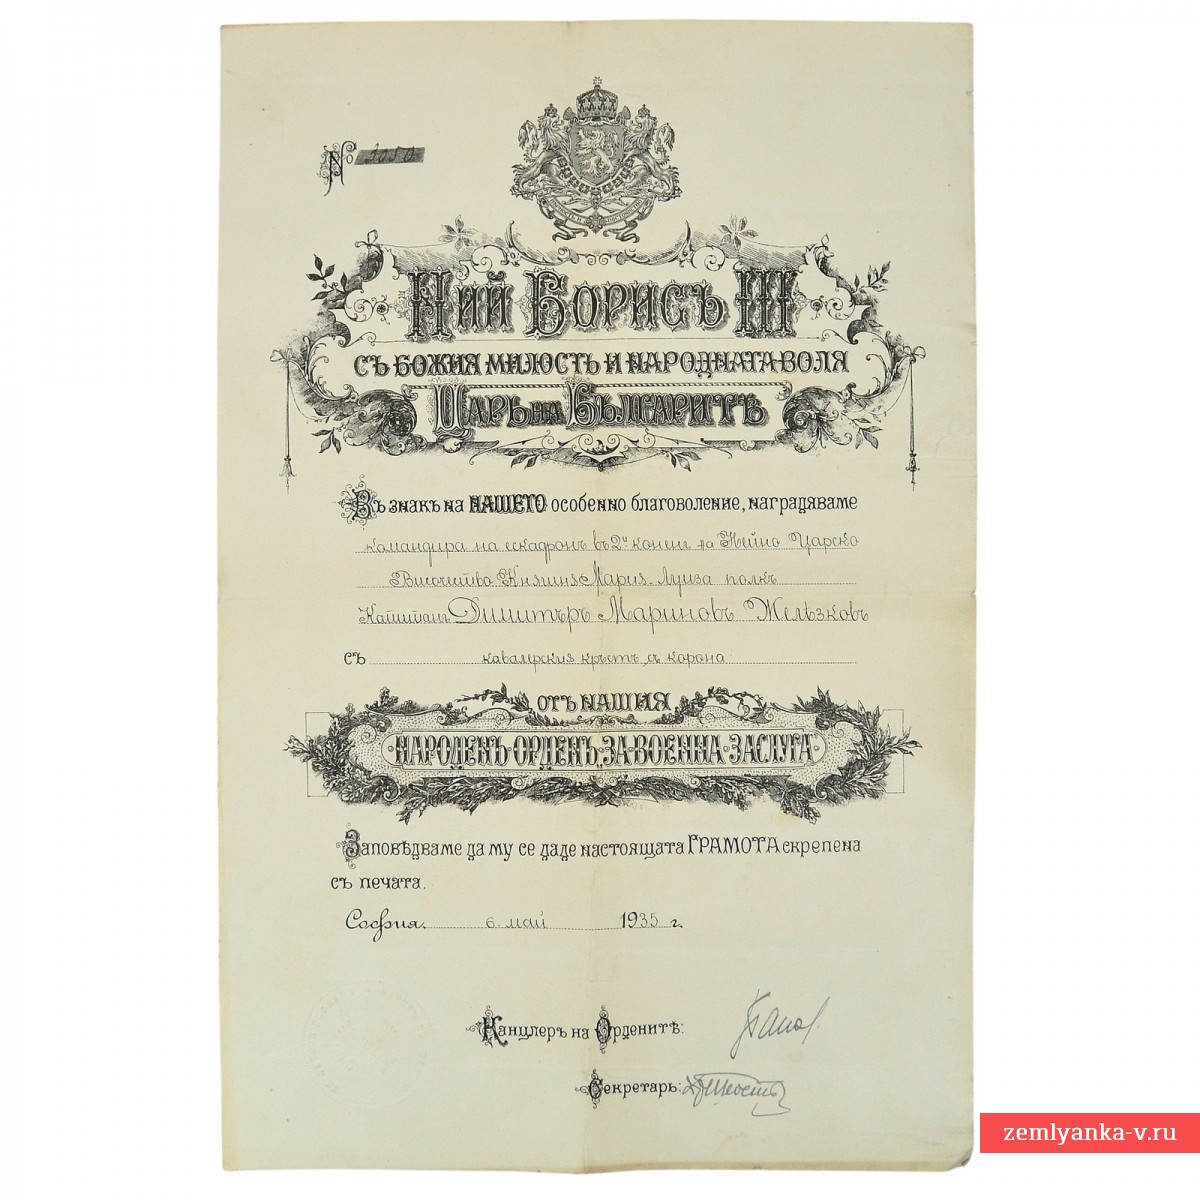 № 3050
Ний Борисъ III
съ Божия милость и народната воля
Царь на Българитѣ
Въ знакъ на НАШЕТО особенно благоволение, наградяваме
командира на ескадронъ въ 2и коненъ на Нейно Царско
Височество Княгиня Мария-Луиза полкъ
Капитанъ Димитъръ Мариновъ Желѣзковъ
съ кавалерския кръстъ съ корона
отъ нашия
народенъ орденъ „за военна заслуга"
Заповѣдваме да му се даде настоящата ГРАМОТА скрепена
съ печата.
София. 6. май 1935 г.
Канцлеръ на Орденитѣ:
Секретарь:
zemlyanka-v.ru